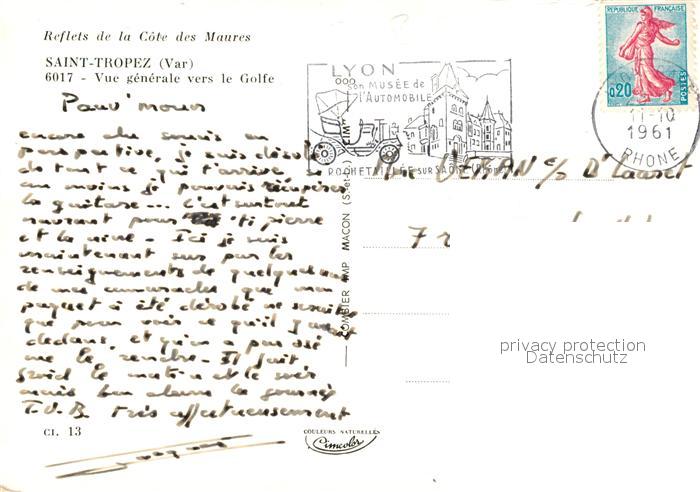 Reflets de la Côte des Maures
SAINT-TROPEZ (Var)
6017 - Vue générale vers le Golfe
LYON
son MUSÉE de
l'AUTOMOBILE
ROCHETAILLÉE SUR SAÔNE
RÉPUBLIQUE FRANÇAISE
0,20
POSTES
11-10
1961
RHONE
encore des soucis en
perspective, je suis désolé
de tout ce qui t'arrive. Si
au moins je pouvais récupérer
la guitare... C'est surtout
navrant pour ti pierre
et la mine. Ici je suis
maintenant sur par les
renseignements de quelques uns
de mes camarades que mon
paquet a été dérobé ne
que pour voir ce qu'il y
dedans, et qu'on a pas osé
me le rendre. Il fait
froid le matin et le soir
mais bon dans la journée
T.V.B. très affectueusement
VERAN c/o Dr
71
COMBIER IMP MACON (S.-et-L.) "CIM"
privacy protection
Datenschutz
CI. 13
COULEURS NATURELLES
Cimcolor